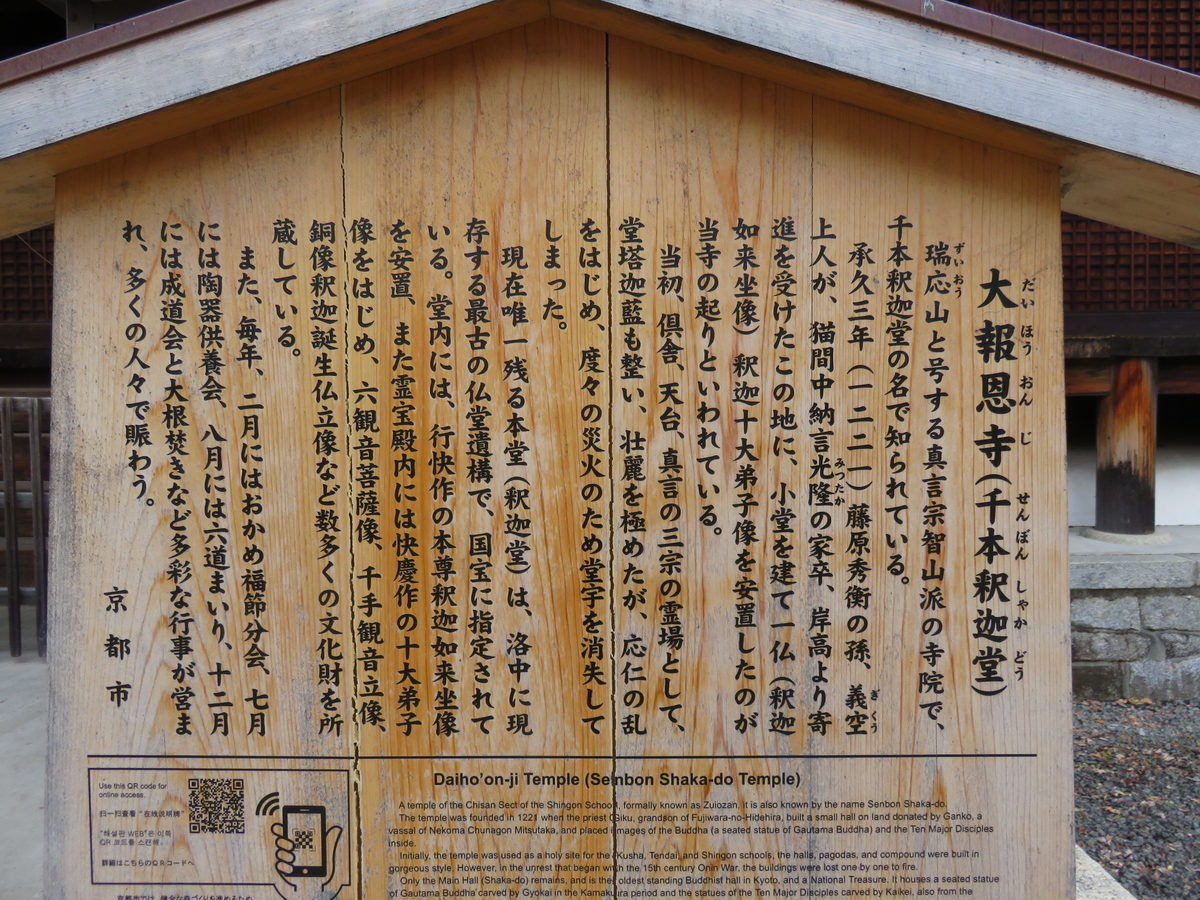 大報恩寺(千本釈迦堂)
だい ほう おん じ せんぼん しゃか どう
瑞応山と号する真言宗智山派の寺院で、
ずいおう
千本釈迦堂の名で知られている。
承久三年(一二二一)藤原秀衡の孫、義空
ぎくう
上人が、猫間中納言光隆の家卒、岸高より寄
みつたか
進を受けたこの地に、小堂を建て一仏(釈迦
如来坐像)釈迦十大弟子像を安置したのが
当寺の起りといわれている。
当初、倶舎、天台、真言の三宗の霊場として、
堂塔迦藍も整い、壮麗を極めたが、応仁の乱
をはじめ、度々の災火のため堂宇を消失して
しまった。
現在唯一残る本堂(釈迦堂)は、洛中に現
存する最古の仏堂遺構で、国宝に指定されて
いる。堂内には、行快作の本尊釈迦如来坐像
を安置、また霊宝殿内には快慶作の十大弟子
像をはじめ、六観音菩薩像、千手観音立像、
銅像釈迦誕生仏立像など数多くの文化財を所
蔵している。
また、毎年、二月にはおかめ福節分会、七月
には陶器供養会、八月には六道まいり、十二月
には成道会と大根焚きなど多彩な行事が営ま
れ、多くの人々で賑わう。
京都市
Daiho'on-ji Temple (Senbon Shaka-do Temple)
A temple of the Chisan Sect of the Shingon School, formally known as Zuiozan, it is also known by the name Senbon Shaka-do.
The temple was founded in 1221 when the priest Giku, grandson of Fujiwara-no-Hidehira, built a small hall on land donated by Ganko, a
vassal of Nekoma Chunagon Mitsutaka, and placed images of the Buddha (a seated statue of Gautama Buddha) and the Ten Major Disciples
inside.
Initially, the temple was used as a holy site for the Kusha, Tendai, and Shingon schools, the halls, pagodas, and compound were built in
gorgeous style. However, in the unrest that began with the 15th century Onin War, the buildings were lost one by one to fire.
Only the Main Hall (Shaka-do) remains, and is the oldest standing Buddhist hall in Kyoto, and a National Treasure. It houses a seated statue
of Gautama Buddha carved by Gyokai in the Kamakura period and the statues of the Ten Major Disciples carved by Kaikei, also from the
Use this QR code for
online access.
扫一扫查看 "在线说明牌"
"해설판 WEB"은 이쪽
QR 코드를 스캔해.
詳細はこちらのQRコードへ